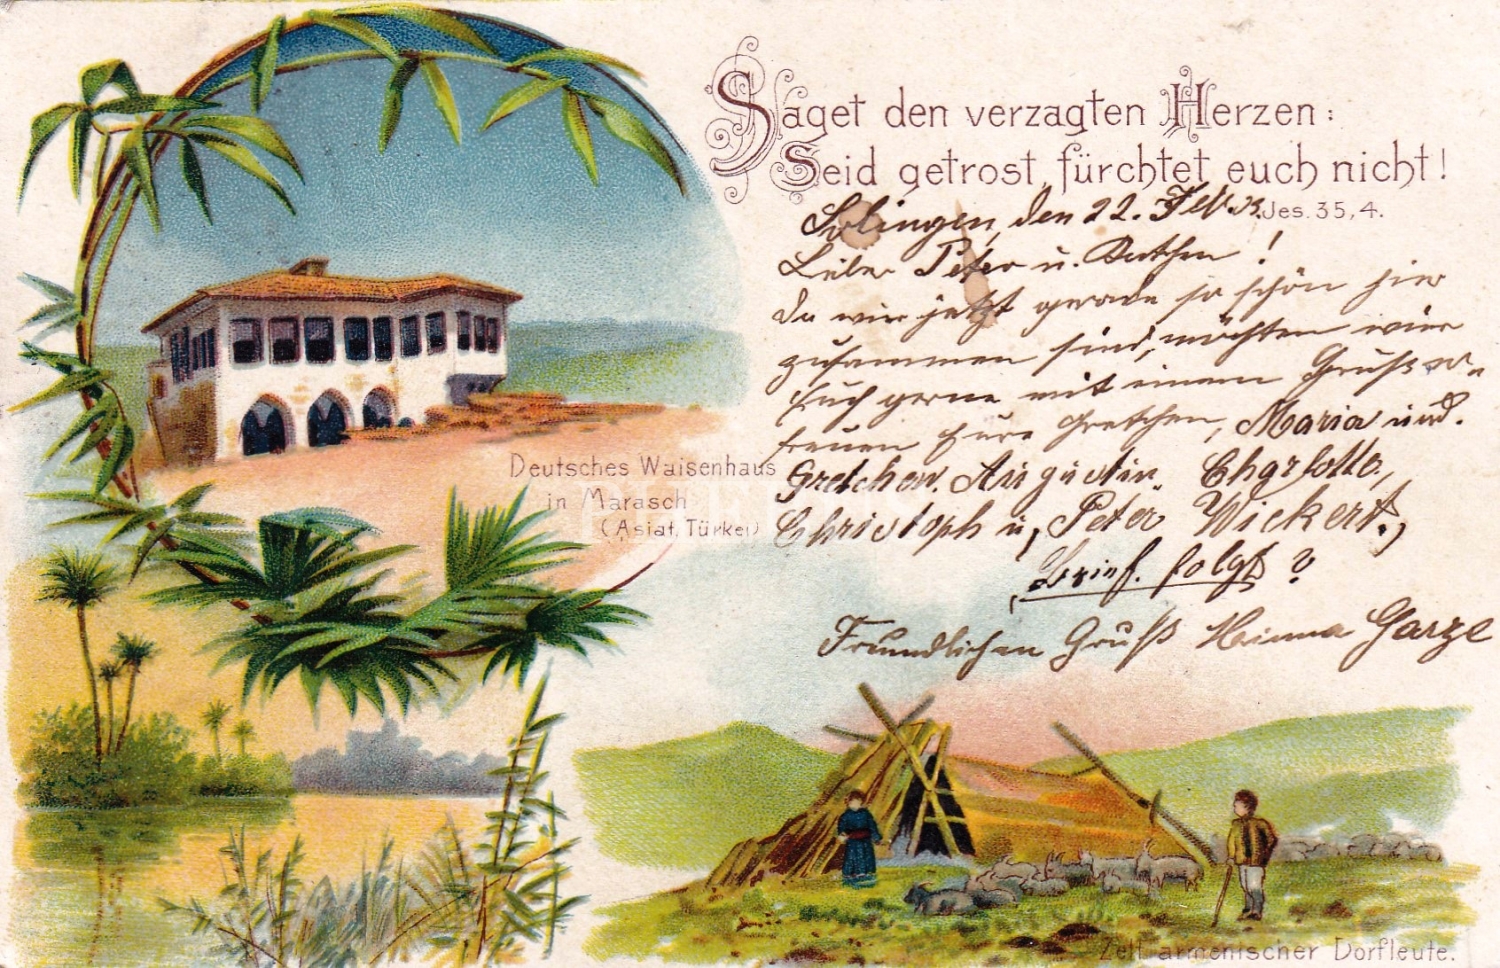 Saget den verzagten Herzen:
Seid getrost, fürchtet euch nicht!
Jes. 35,4.
Solingen, den 22. Feb.
Lieber Peter u. !
Da wir jetzt gerade so schön hier
zusammen sind, möchten wir
Euch gerne mit einem Gruß er-
freuen Eure Gretchen, Maria und.
Gretchen. Augustin. Charlotte,
Christoph u, Peter Wickert.,
Brief. folgt
Freundlichen Gruß
Deutsches Waisenhaus
in Marasch
(Asiat. Türkei)
Zelt armenischer Dorfleute.